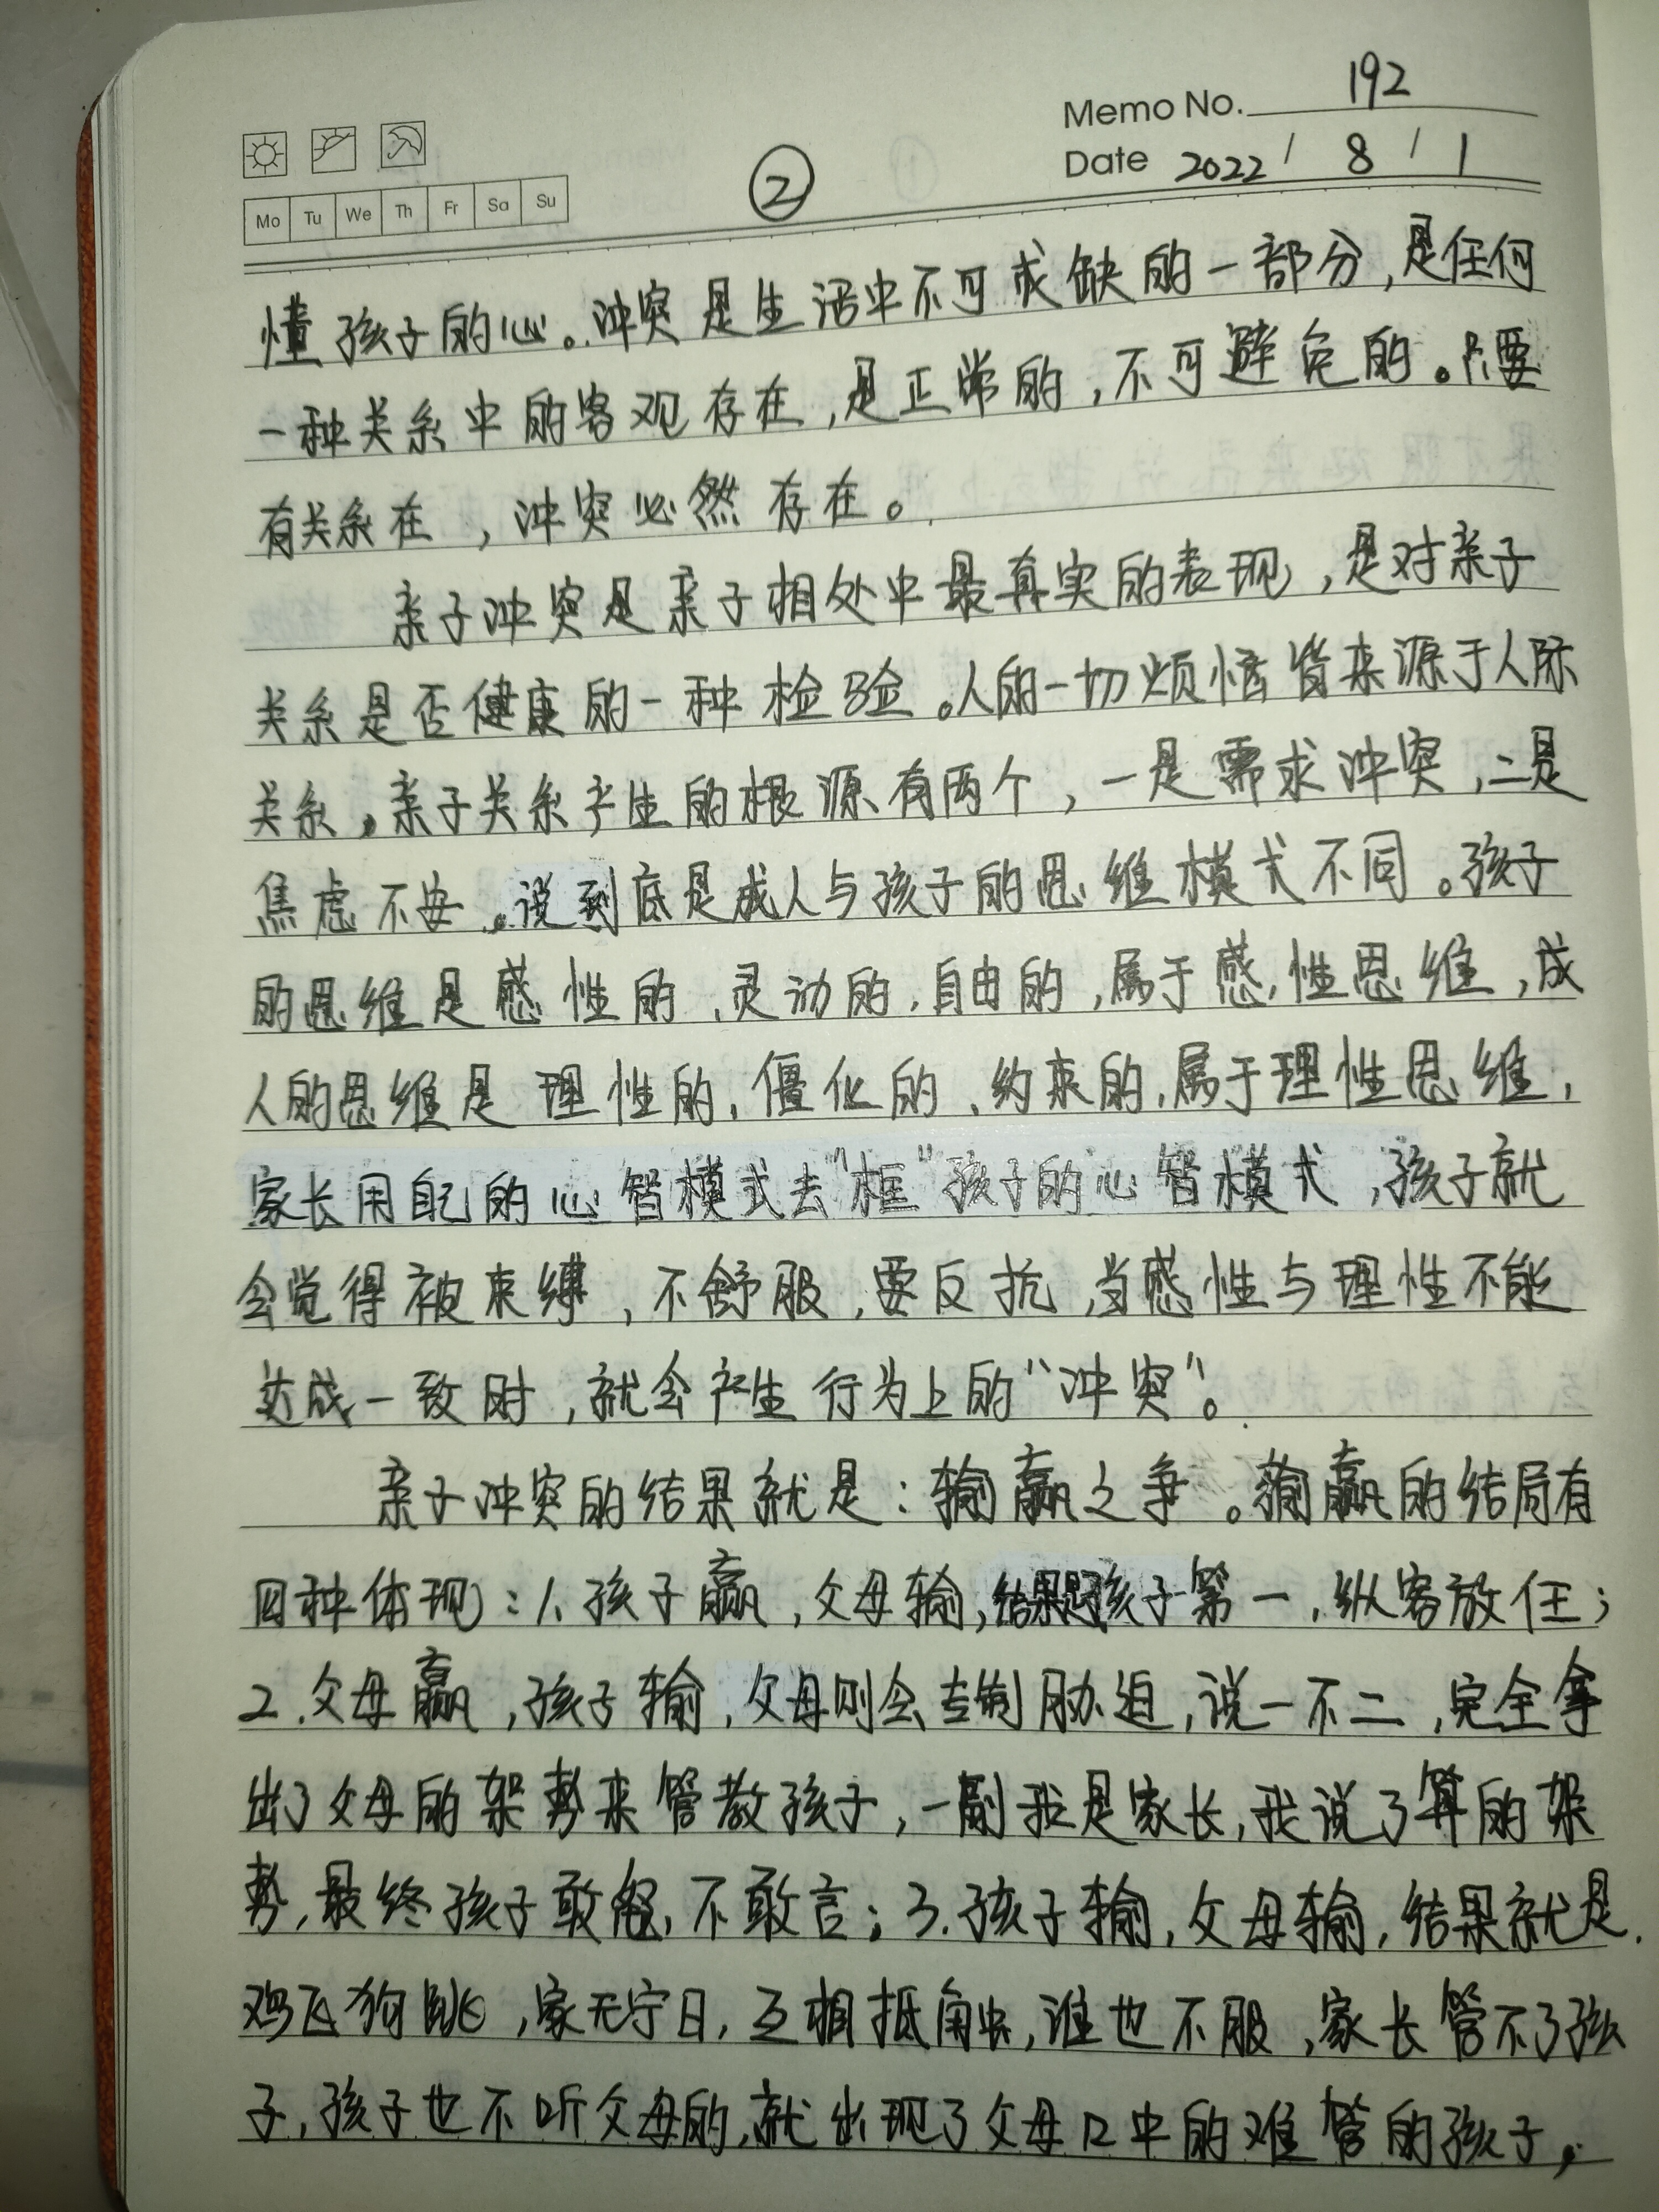 Memo No. 192
②
Date 2022 / 8 / 1
Mo Tu We Th Fr Sa Su
懂孩子的心。冲突是生活中不可或缺的一部分,是任何
一种关系中的客观存在,是正常的,不可避免的。只要
有关系在,冲突必然存在。
亲子冲突是亲子相处中最真实的表现,是对亲子
关系是否健康的一种检验。人的一切烦恼皆来源于人际
关系,亲子关系产生的根源有两个,一是需求冲突,二是
焦虑不安。说到底是成人与孩子的思维模式不同。孩子
的思维是感性的、灵动的,自由的,属于感性思维,成
人的思维是理性的,僵化的、约束的,属于理性思维,
家长用自己的心智模式去“框”孩子的心智模式,孩子就
会觉得被束缚,不舒服,要反抗,当感性与理性不能
达成一致时,就会产生行为上的“冲突”。
亲子冲突的结果就是:输赢之争。输赢的结局有
四种体现:1、孩子赢,父母输,结果是孩子第一,纵容放任;
2.父母赢,孩子输,父母则会专制胁迫,说一不二,完全拿
出了父母的架势来管教孩子,一副我是家长,我说了算的架
势,最终孩子敢怒,不敢言;3.孩子输,父母输,结果就是
鸡飞狗跳,家无宁日,互相抵触,谁也不服,家长管不了孩
子,孩子也不听父母的,就出现了父母口中的难管的孩子,